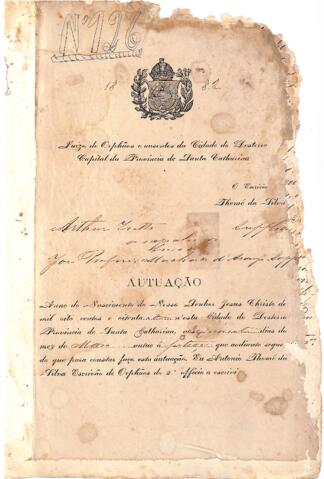 Nº 126
18 82
Juizo de Orphãos e ausentes da Cidade do Desterro
Capital da Provincia de Santa Catharina
O Escrivão
Thomé da Silva
Arthur
José Machado de Araujo
AUTUAÇÃO
Anno do Nascimento de Nosso Senhor Jesus Christo de
mil oito centos e oitenta n'esta Cidade do Desterro
Provincia de Santa Catharina, aos dias do
mez de Maio autuo a que adiante segue
do que para constar faço esta autuação. Eu Antonio Thomé da
Silva Escrivão de Orphãos do 2º officio a escrevi